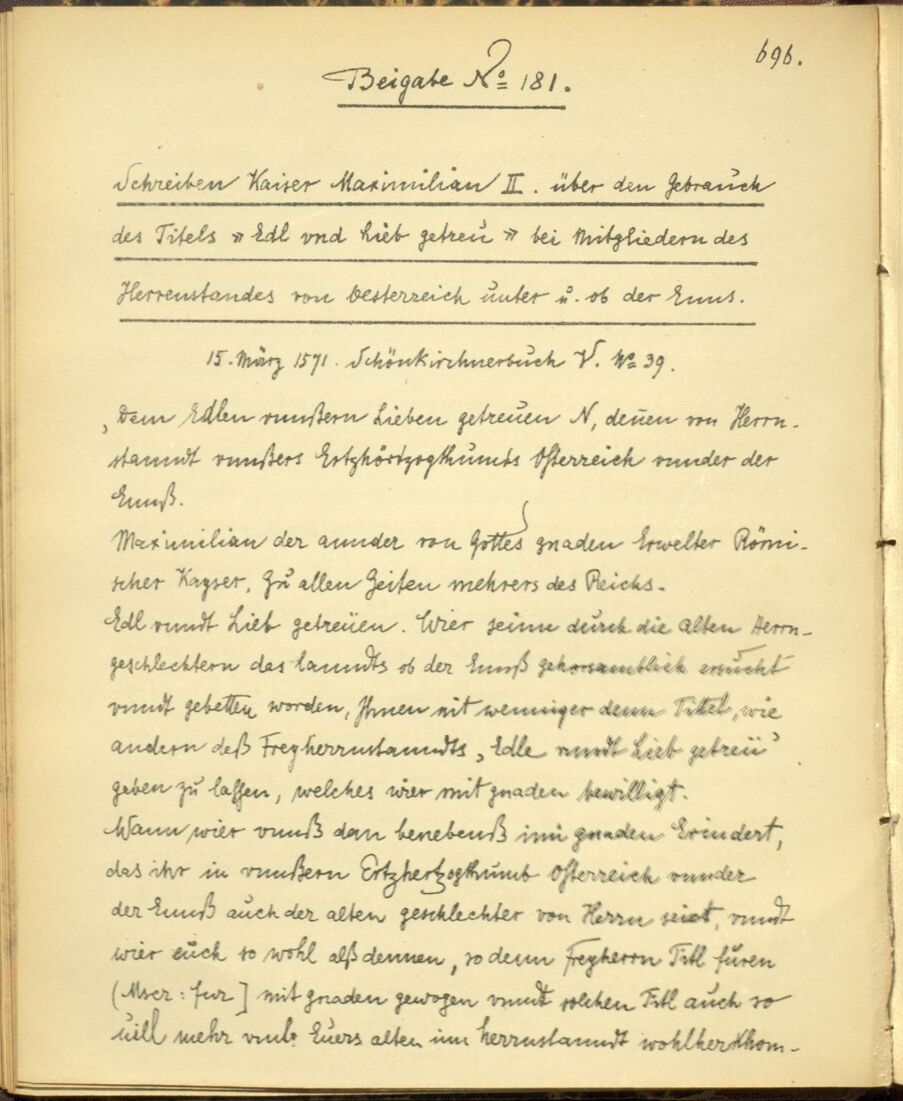 696.
Beigabe No 181.
Schreiben Kaiser Maximilian II. über den Gebrauch
des Titels „Edl vnd Lieb getreu" bei Mitgliedern des
Herrenstandes von Oesterreich unter u. ob der Enns.
15. März 1571. Schönkirchnerbuch V. No 39.
„Dem Edlen vnnßern Lieben getreuen N, denen von Herrn-
stanndt vnnßers Ertzhörtzogthumbs Osterreich vnnder der
Ennß.
Maximilian der annder von Gottes gnaden Erwelter Römi-
scher Kayser, Zu allen Zeiten mehrers des Reichs.
Edl vnndt Lieb getreüen. Wier seinn durch die alten Herrn-
geschlechtern des lanndts ob der Ennß gehorsamblich ersucht
vnndt gebetten worden, Ihnen nit weniger denn Tittel, wie
andern deß Freyherrnstanndts „Edle vnndt Lieb getreü"
geben zu lassen, welches wier mit gnaden bewilligt.
Wann wier vnnß dan benebenß inn gnaden Erindert,
das ihr in vnnßern Ertzhertzogthumb Osterreich vnnder
der Ennß auch der alten geschlechter von Herrn seiet, vnndt
wier euch so wohl alß dennen, so denn Freyherrn Titl füren
(Mscr: fur] mit gnaden gewogen vnndt solchen Titl auch so
uill mehr vmb Euers alten inn herrnstanndt wohlherkhom-